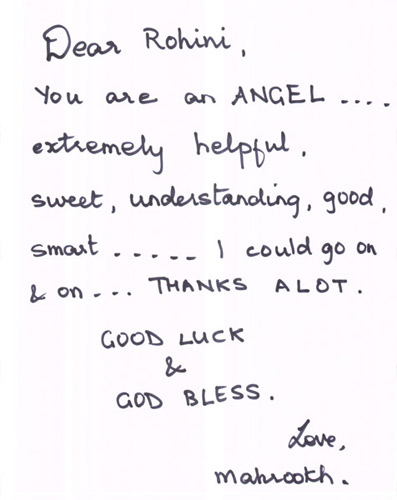 Dear Rohini,
You are an ANGEL ....
extremely helpful,
sweet, understanding, good,
smart ..... I could go on
& on... THANKS ALOT.
GOOD LUCK
&
GOD BLESS.
Love,
Mahrookh.